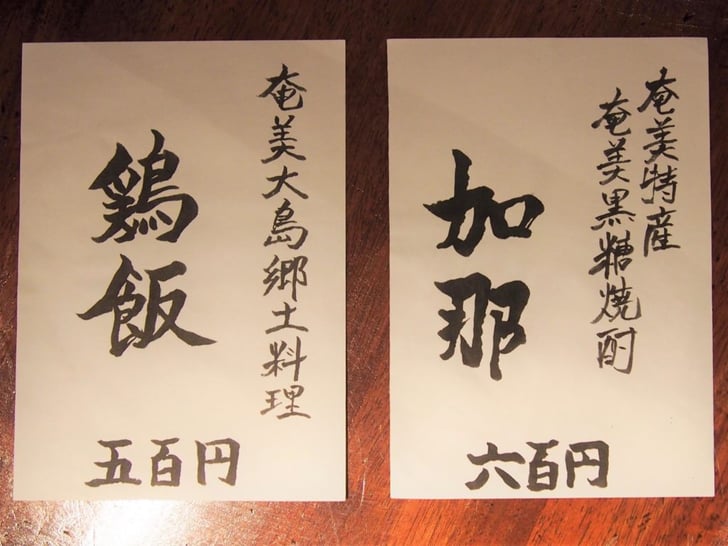 奄美大島郷土料理
鶏飯
五百円
奄美特産
奄美黒糖焼酎
加那
六百円